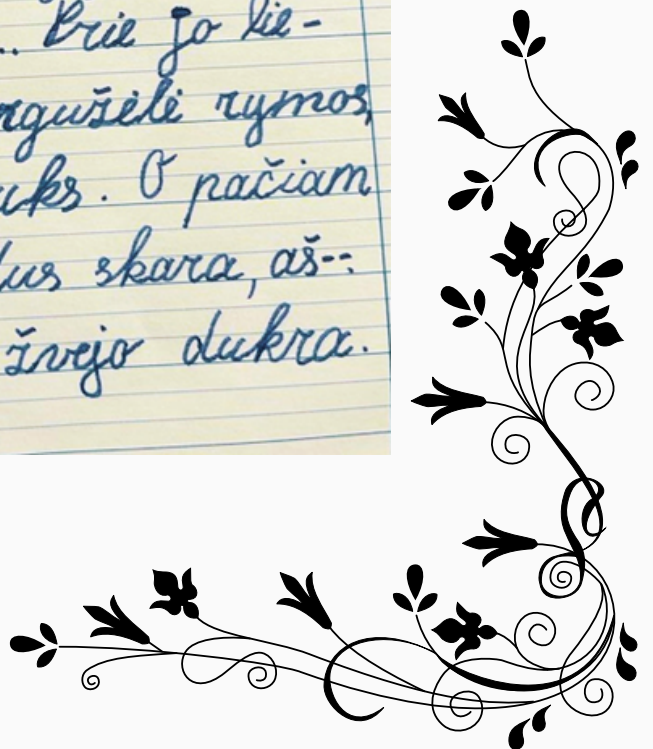 .. Prie jo lie-
rgušėlė rymos,
uks. O pačiam
lus skara, aš--:
žvejo dukra.